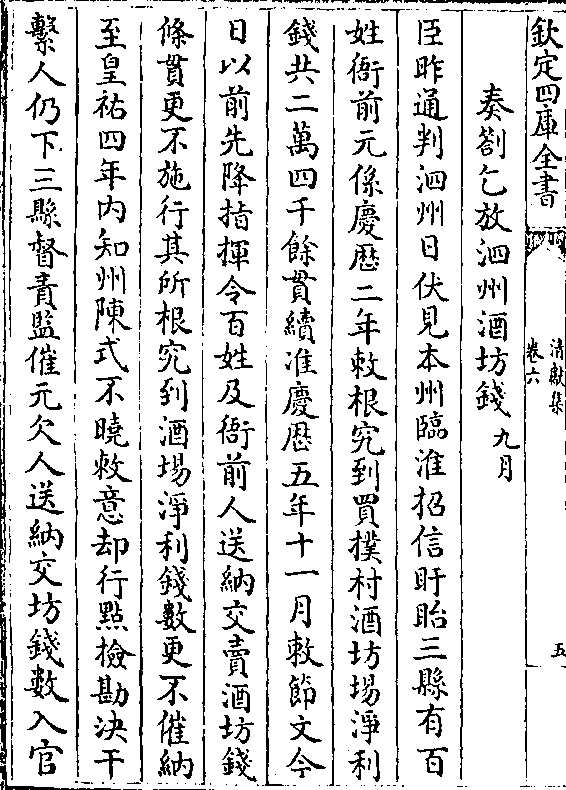 欽定四庫全書
清獻集
卷六
五
奏劄乞放泗州酒坊錢九月
臣昨通判泗州日伏見本州臨淮招信盱眙三縣有百
姓衙前元係慶歴二年敕根究到買撲村酒坊場淨利
錢共二萬四千餘貫續准慶歴五年十一月敕節文今
日以前先降指揮令百姓及衙前人送納交賣酒坊錢
條貫更不施行其所根究到酒場淨利錢數更不催納
至皇祐四年内知州陳式不曉敕意却行點檢勘決干
繫人仍下三縣督責監催元欠人送納交坊錢數入官